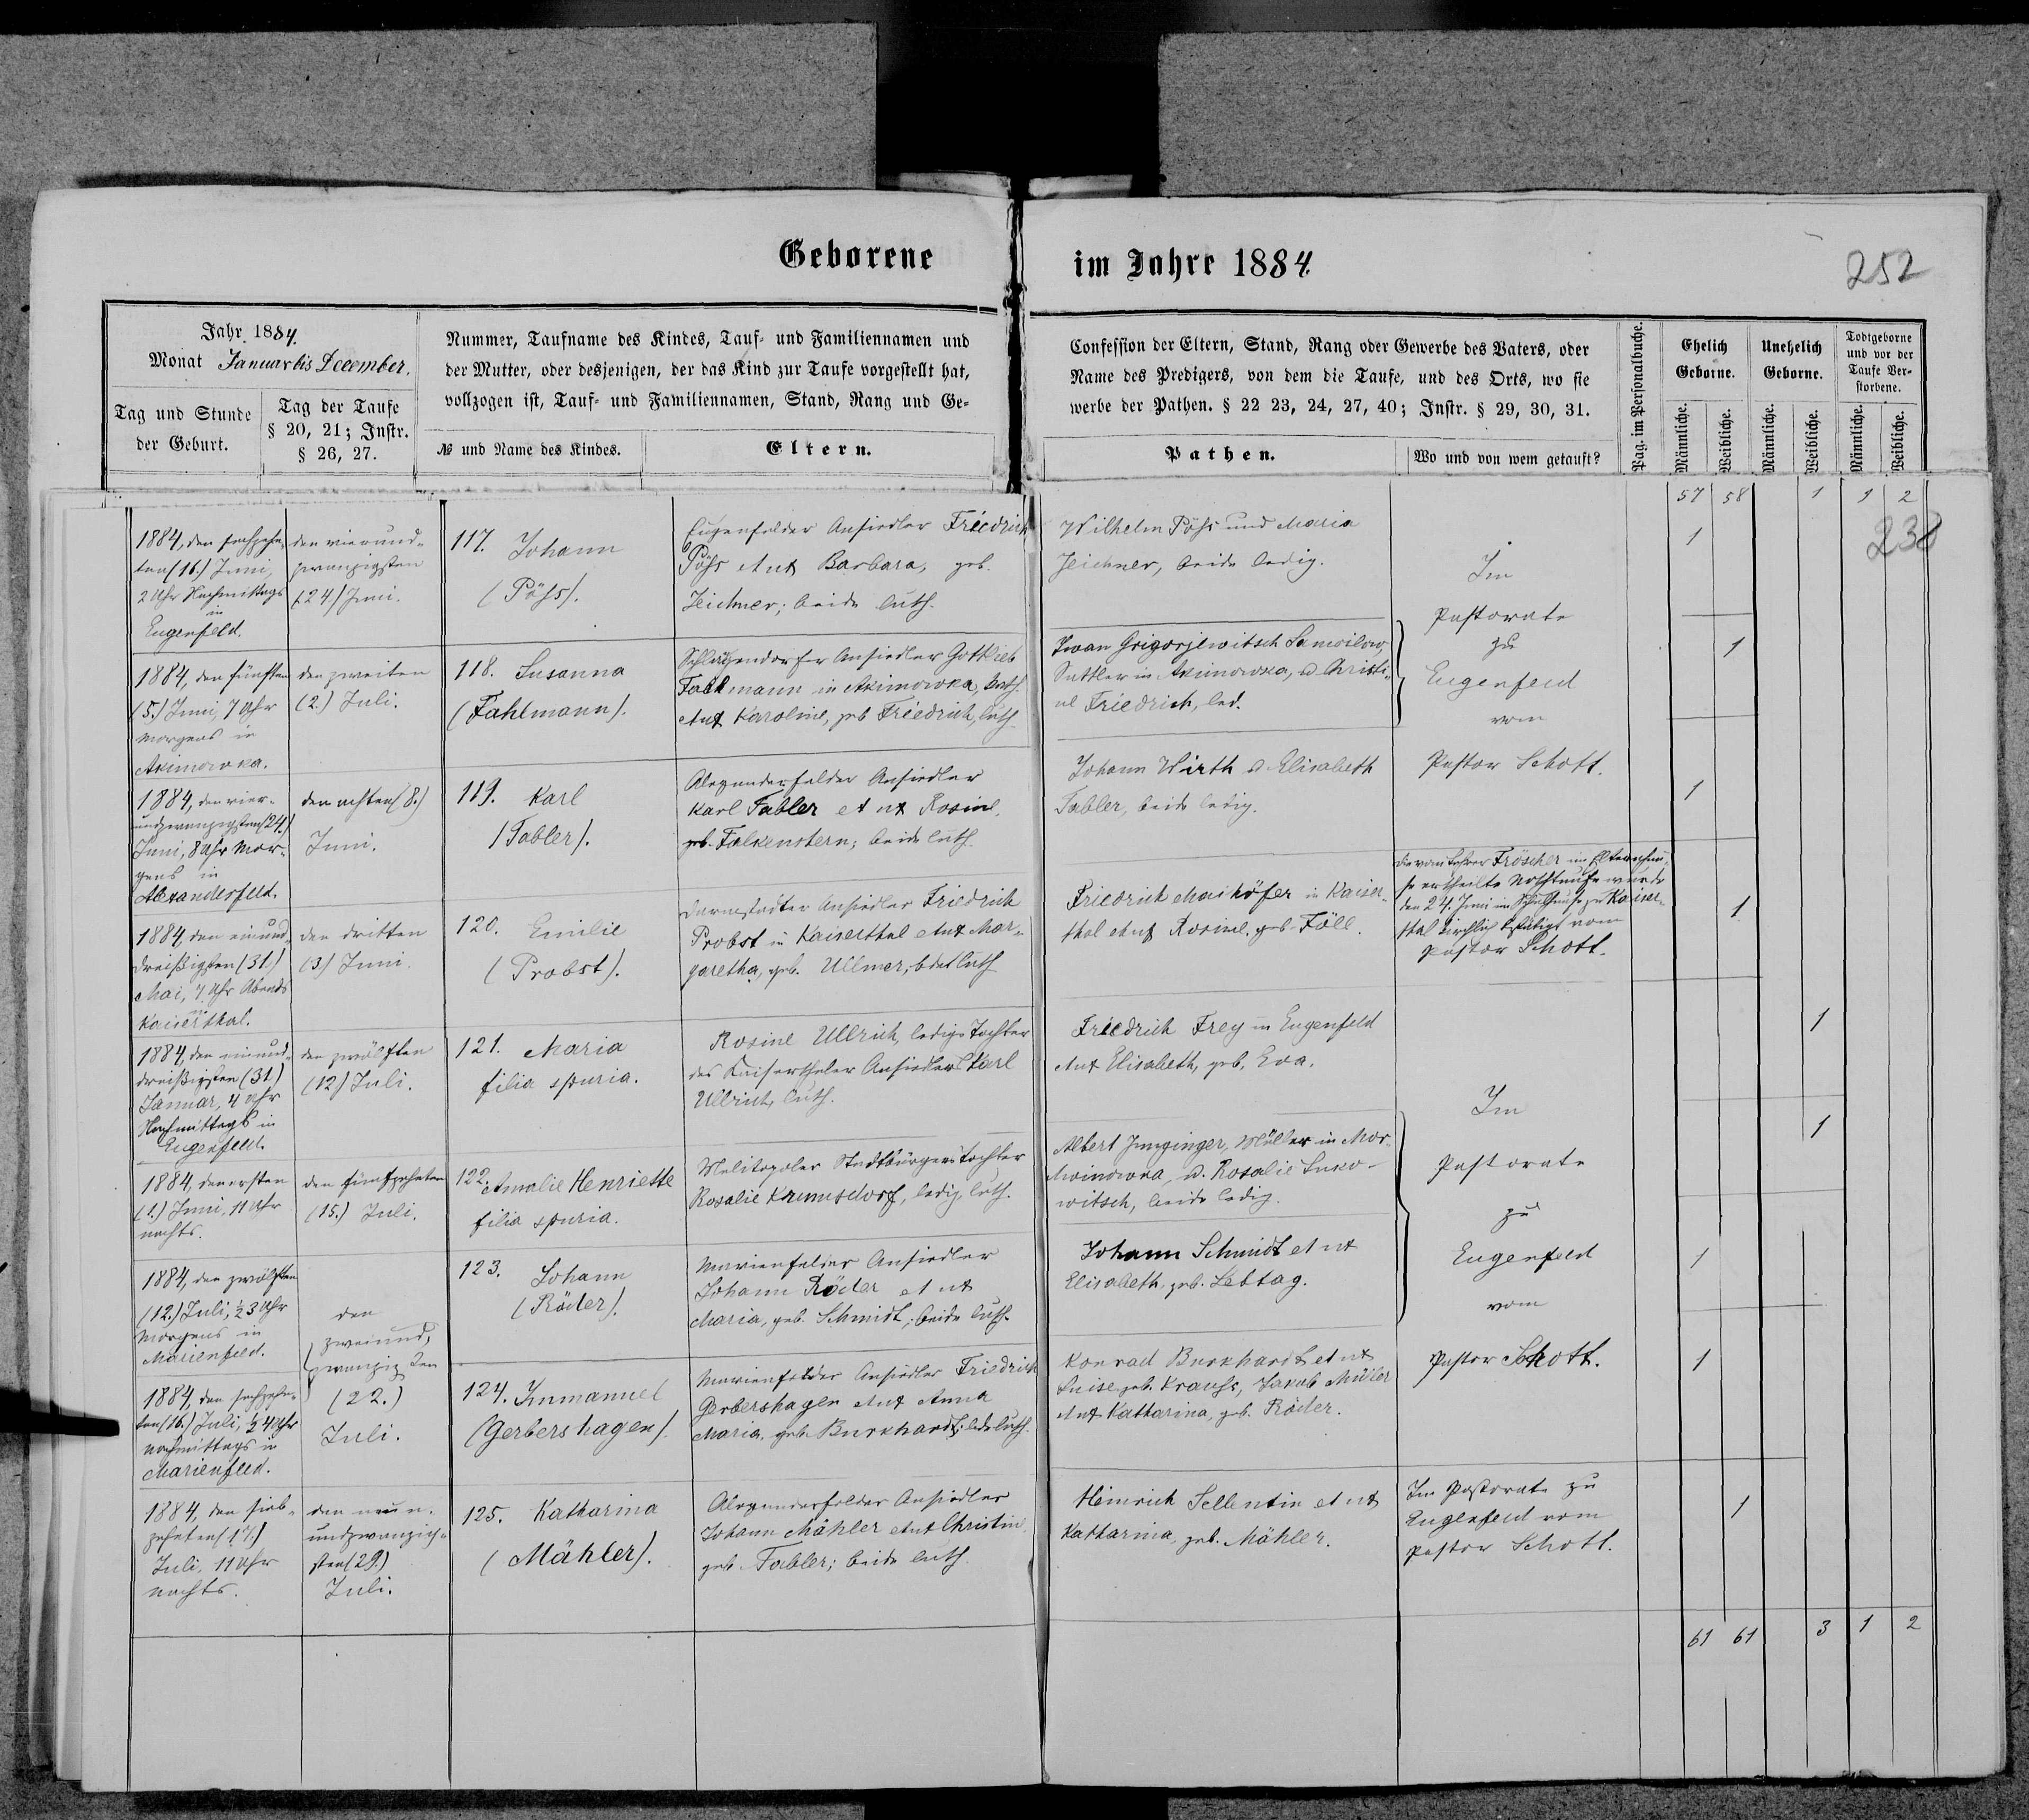 Geborene im Jahre 1884.
252
Jahr 1884.
Monat Januar bis December.
Tag und Stunde
der Geburt.
Tag der Taufe
§ 20, 21; Instr.
§ 26, 27.
Nummer, Taufname des Kindes, Tauf- und Familiennamen und
der Mutter, oder desjenigen, der das Kind zur Taufe vorgestellt hat,
vollzogen ist, Tauf- und Familiennamen, Stand, Rang und Ge-
№ und Name des Kindes.
Eltern.
Confession der Eltern, Stand, Rang oder Gewerbe des Vaters, oder
Name des Predigers, von dem die Taufe, und des Orts, wo sie
werbe der Pathen. § 22 23, 24, 27, 40; Instr. § 29, 30, 31.
Pathen.
Wo und von wem getauft?
Pag. im Personalbuche.
Ehelich
Geborne.
Unehelich
Geborne.
Todtgeborne
und vor der
Taufe Ver-
storbene.
Männliche.
Weibliche.
Männliche.
Weibliche.
Männliche.
Weibliche.
57 58 1 1 2
238
1884, den sechzehn-
ten (16.) Juni,
2 Uhr Nachmittags
in
Eugenfeld.
den vierund-
zwanzigsten
(24.) Juni.
117. Johann
(Pöhs).
Eugenfelder Ansiedler Friedrich
Pöhs et ux Barbara, geb.
Zeichner; beide luth.
Wilhelm Pöhs und Maria
Zeichner, beide ledig.
Im
Pastorate
zu
Eugenfeld
vom
Pastor Schott.
1
1884, den fünften
(5.) Juni, 7 Uhr
Morgens in
Akimowka.
den zweiten
(2.) Juli.
118. Susanna
(Fahlmann).
Ansiedler Gottlieb
Fahlmann in Akimowka,
et ux Karoline, geb Friedrich, luth.
Iwan Grigorjewitsch Samoilow,
Sattler in Akimowka, u. Christi-
ne Friedrich, led.
1
1884, den vier-
undzwanzigsten (24.)
Juni, 8 Uhr Mor-
gens in
Alexanderfeld.
den achten (8.)
Juni.
119. Karl
(Tabler).
Alexanderfelder Ansiedler
Karl Tabler et ux Rosine,
geb. Falkenstern; beide luth.
Johann Wirth u. Elisabeth
Tabler, beide ledig.
1
1884, den einund-
dreißigsten (31.)
Mai, 7 Uhr Abends
in
Kaiserthal.
den dritten
(3.) Juni.
120. Emilie
(Probst).
Darmstadter Ansiedler Friedrich
Probst in Kaiserthal et ux Mar-
garetha, geb. Ullmer; luth.
Friedrich Maihöfer in Kaiser-
thal et ux Rosine, geb. Föll.
die vom Lehrer Fröscher im Elternhau-
se ertheilte Nothtaufe wurde
den 24. Juni im Schulhause zu Kaiser-
thal kirchlich bestätigt vom
Pastor Schott.
1
1884, den einund-
dreißigsten (31.)
Januar, 4 Uhr
Nachmittags in
Eugenfeld.
den zwölften
(12.) Juli.
121. Maria
filia spuria.
Rosine Ullrich, ledige Tochter
des Kaiserthaler Ansiedlers Karl
Ullrich, luth.
Friedrich Frey in Eugenfeld
et ux Elisabeth, geb. Eva.
1
1884, den ersten
(1.) Juni, 11 Uhr
nachts.
den fünfzehnten
(15.) Juli.
122. Amalie Henriette
filia spuria.
Melitopoler Stadtbürgerstochter
Rosalie Krumsdorf, ledig, luth.
Albert Junginger, Müller in
u. Rosalie Suko-
witsch, beide ledig.
Im
Pastorate
zu
Eugenfeld
vom
Pastor Schott.
1
1884, den zwölften
(12.) Juli, ½ 3 Uhr
Morgens in
Marienfeld.
den
zweiund-
zwanzigsten
(22.)
Juli.
123. Johann
(Röder).
Marienfelder Ansiedler
Johann Röder et ux
Maria, geb. Schmidt; beide luth.
Johann Schmidt et ux
Elisabeth, geb. Lebtag.
1
1884, den sechzehn-
ten (16.) Juli, ½ 4 Uhr
nachmittags in
Marienfeld.
124. Immanuel
(Gerbershagen).
Marienfelder Ansiedler Friedrich
Gerbershagen et ux Anna
Maria, geb. Burkhardt; bde luth.
Konrad Burkhardt et ux
Luise, geb. Krauss, Jakob Müller
et ux Katharina, geb. Röder.
1
1884, den sieb-
zehnten (17.)
Juli, 11 Uhr
nachts.
den neun-
undzwanzig-
sten (29.)
Juli.
125. Katharina
(Mähler).
Alexanderfelder Ansiedler
Johann Mähler et ux Christine,
geb. Tabler; beide luth.
Heinrich Sellentin et ux
Katharina, geb. Mähler.
Im Pastorate zu
Eugenfeld vom
Pastor Schott.
1
61 61 3 1 2